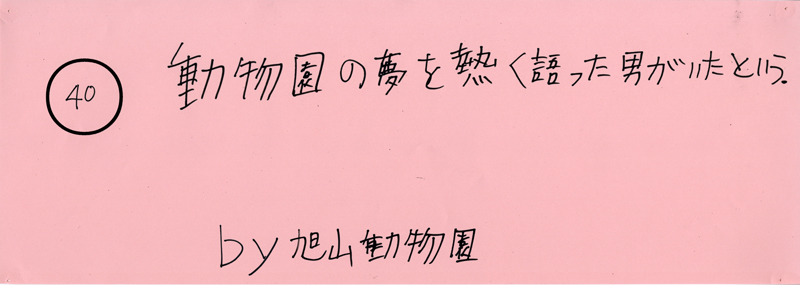 40
動物園の夢を熱く語った男がいたという。
by 旭山動物園